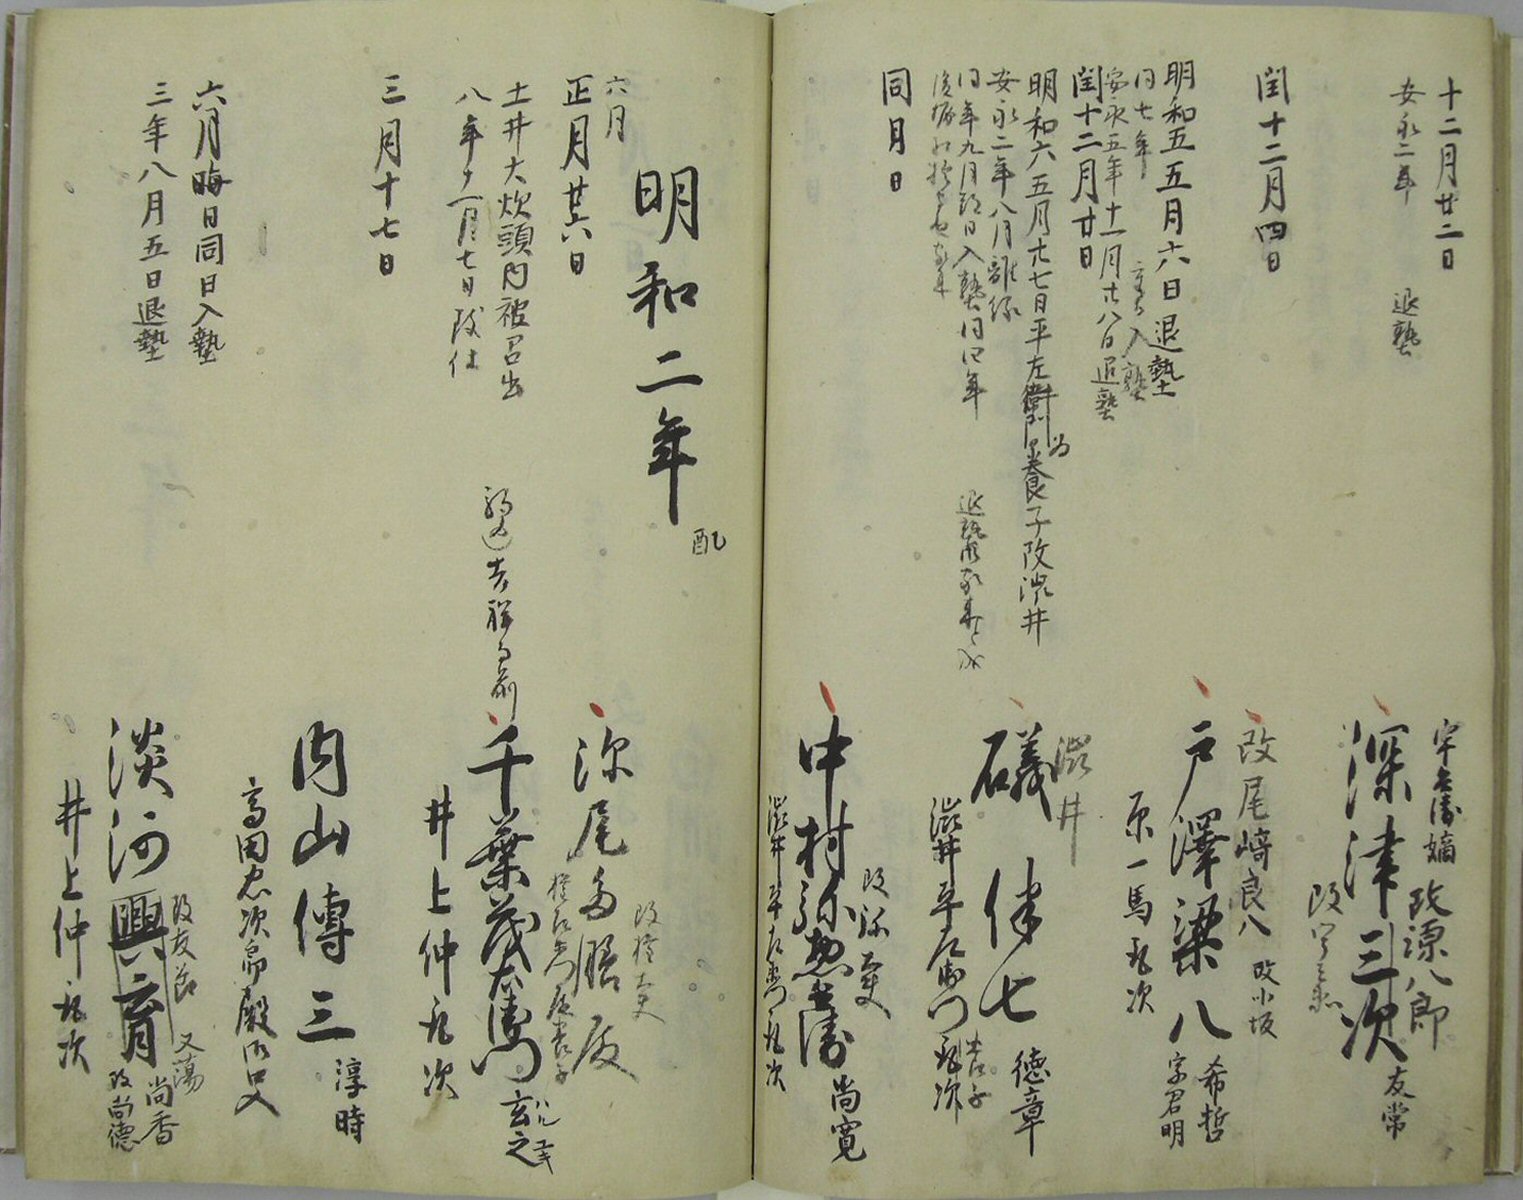 十二月廿二日
安永二年 退塾
宇兵衛嫡 改源八郎
深津三次 友常
閏十二月四日
改尾崎良八 改小坂
戸澤梁八 希哲
字君明
原一馬 取次
明和五五月六日退塾
同七年 入塾
安永五年十一月廿八日退塾
閏十二月廿日
澁井
明和六五月廿七日平左衛門為養子改澁井
磯 伴七 徳章
養子
安永二年八月離縁
同年九月 日入塾同四年
澁井平左衛門 取次
同月日
改弥
中村弥惣兵衛 尚寛
澁井平左衛門 取次
明和二年
配
六月
正月廿六日
土井大炊頭内被召出
八年十一月七日致仕
千葉茂左衛門 玄之
井上仲 取次
三月十七日
内山傳三 淳時
高田忠次郎殿
六月晦日同日入塾
三年八月五日退塾
改友節 又蕩
淡河興育 尚香
改尚德
井上仲 取次